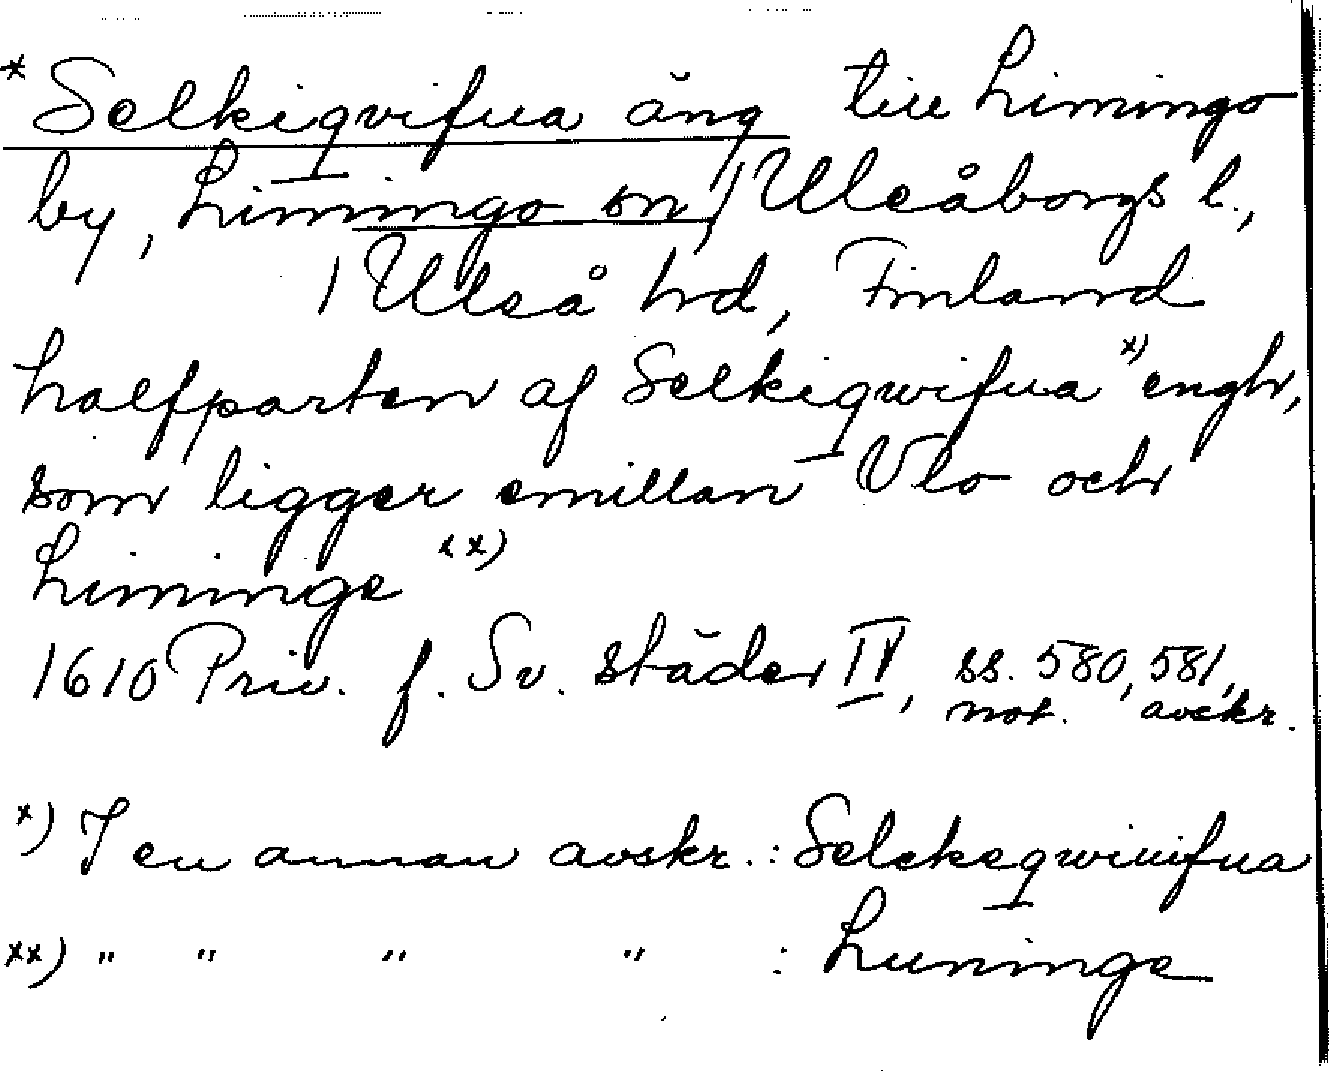 * Selkiqvifua äng till Limingo
by, Limingo sn / Uleåborgs l.,
/ Uleå hd, Finland
halfparten af Selkiqwifua x) engh,
som ligger emillan Vlo och
Liminge xx)
1610 Priv. f. Sv. städer IV, ss. 580, 581,
not. avskr.
x) I en annan avskr.: Selckeqwinifua
xx) " " " " : Luninge